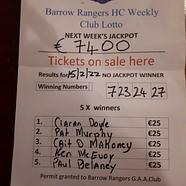 Barrow Rangers HC Weekly
Club Lotto
NEXT WEEK'S JACKPOT
€ 7400
Tickets on sale here
Results for 15/2/22 NO JACKPOT WINNER
Winning Numbers 7 23 24 27
5 X winners
1. Ciaran Doyle €25
2. Pat Murphy €25
3. Cait O Mahoney €25
4. Ken McEvoy €25
5. Paul Delaney €25
Permit granted to Barrow Rangers G.A.A. Club